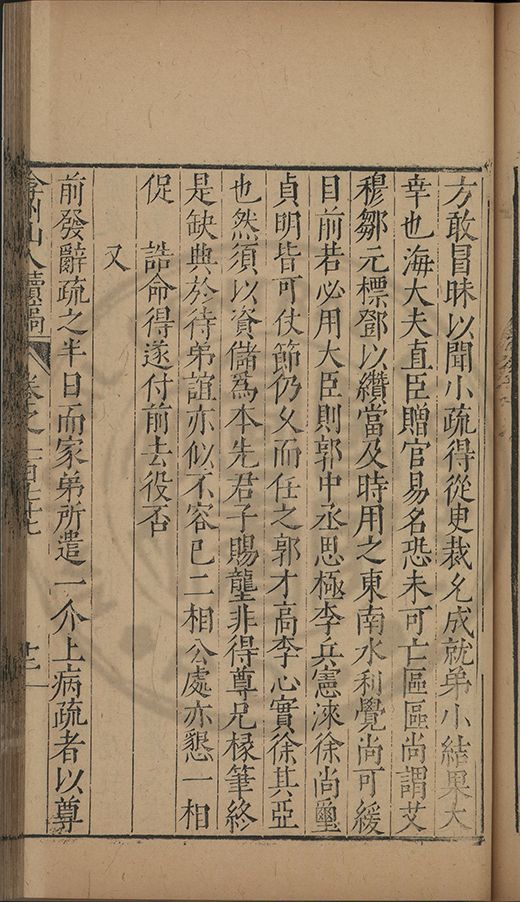 方敢冒昧以聞小疏得從更裁幺成就弟小結果大
幸也海大夫直臣贈官易名恐未可亡區區尚謂艾
穆鄒元標鄧以纘當及時用之東南水利覺尚可緩
目前若必用大臣則郭中丞思極李兵憲淶徐尚璽
貞明皆可仗節仍乆而任之郭才高李心實徐其亞
也然須以資儲爲本先君子賜塋非得尊兄椽筆終
是缺典於待弟誼亦似不容已二相公處亦懇一相
促 誥命得遂付前去役否
又
前發辭疏之半日而家弟所遣一介上病疏者以尊
弇州山人續稿 卷之一百七十七 十二